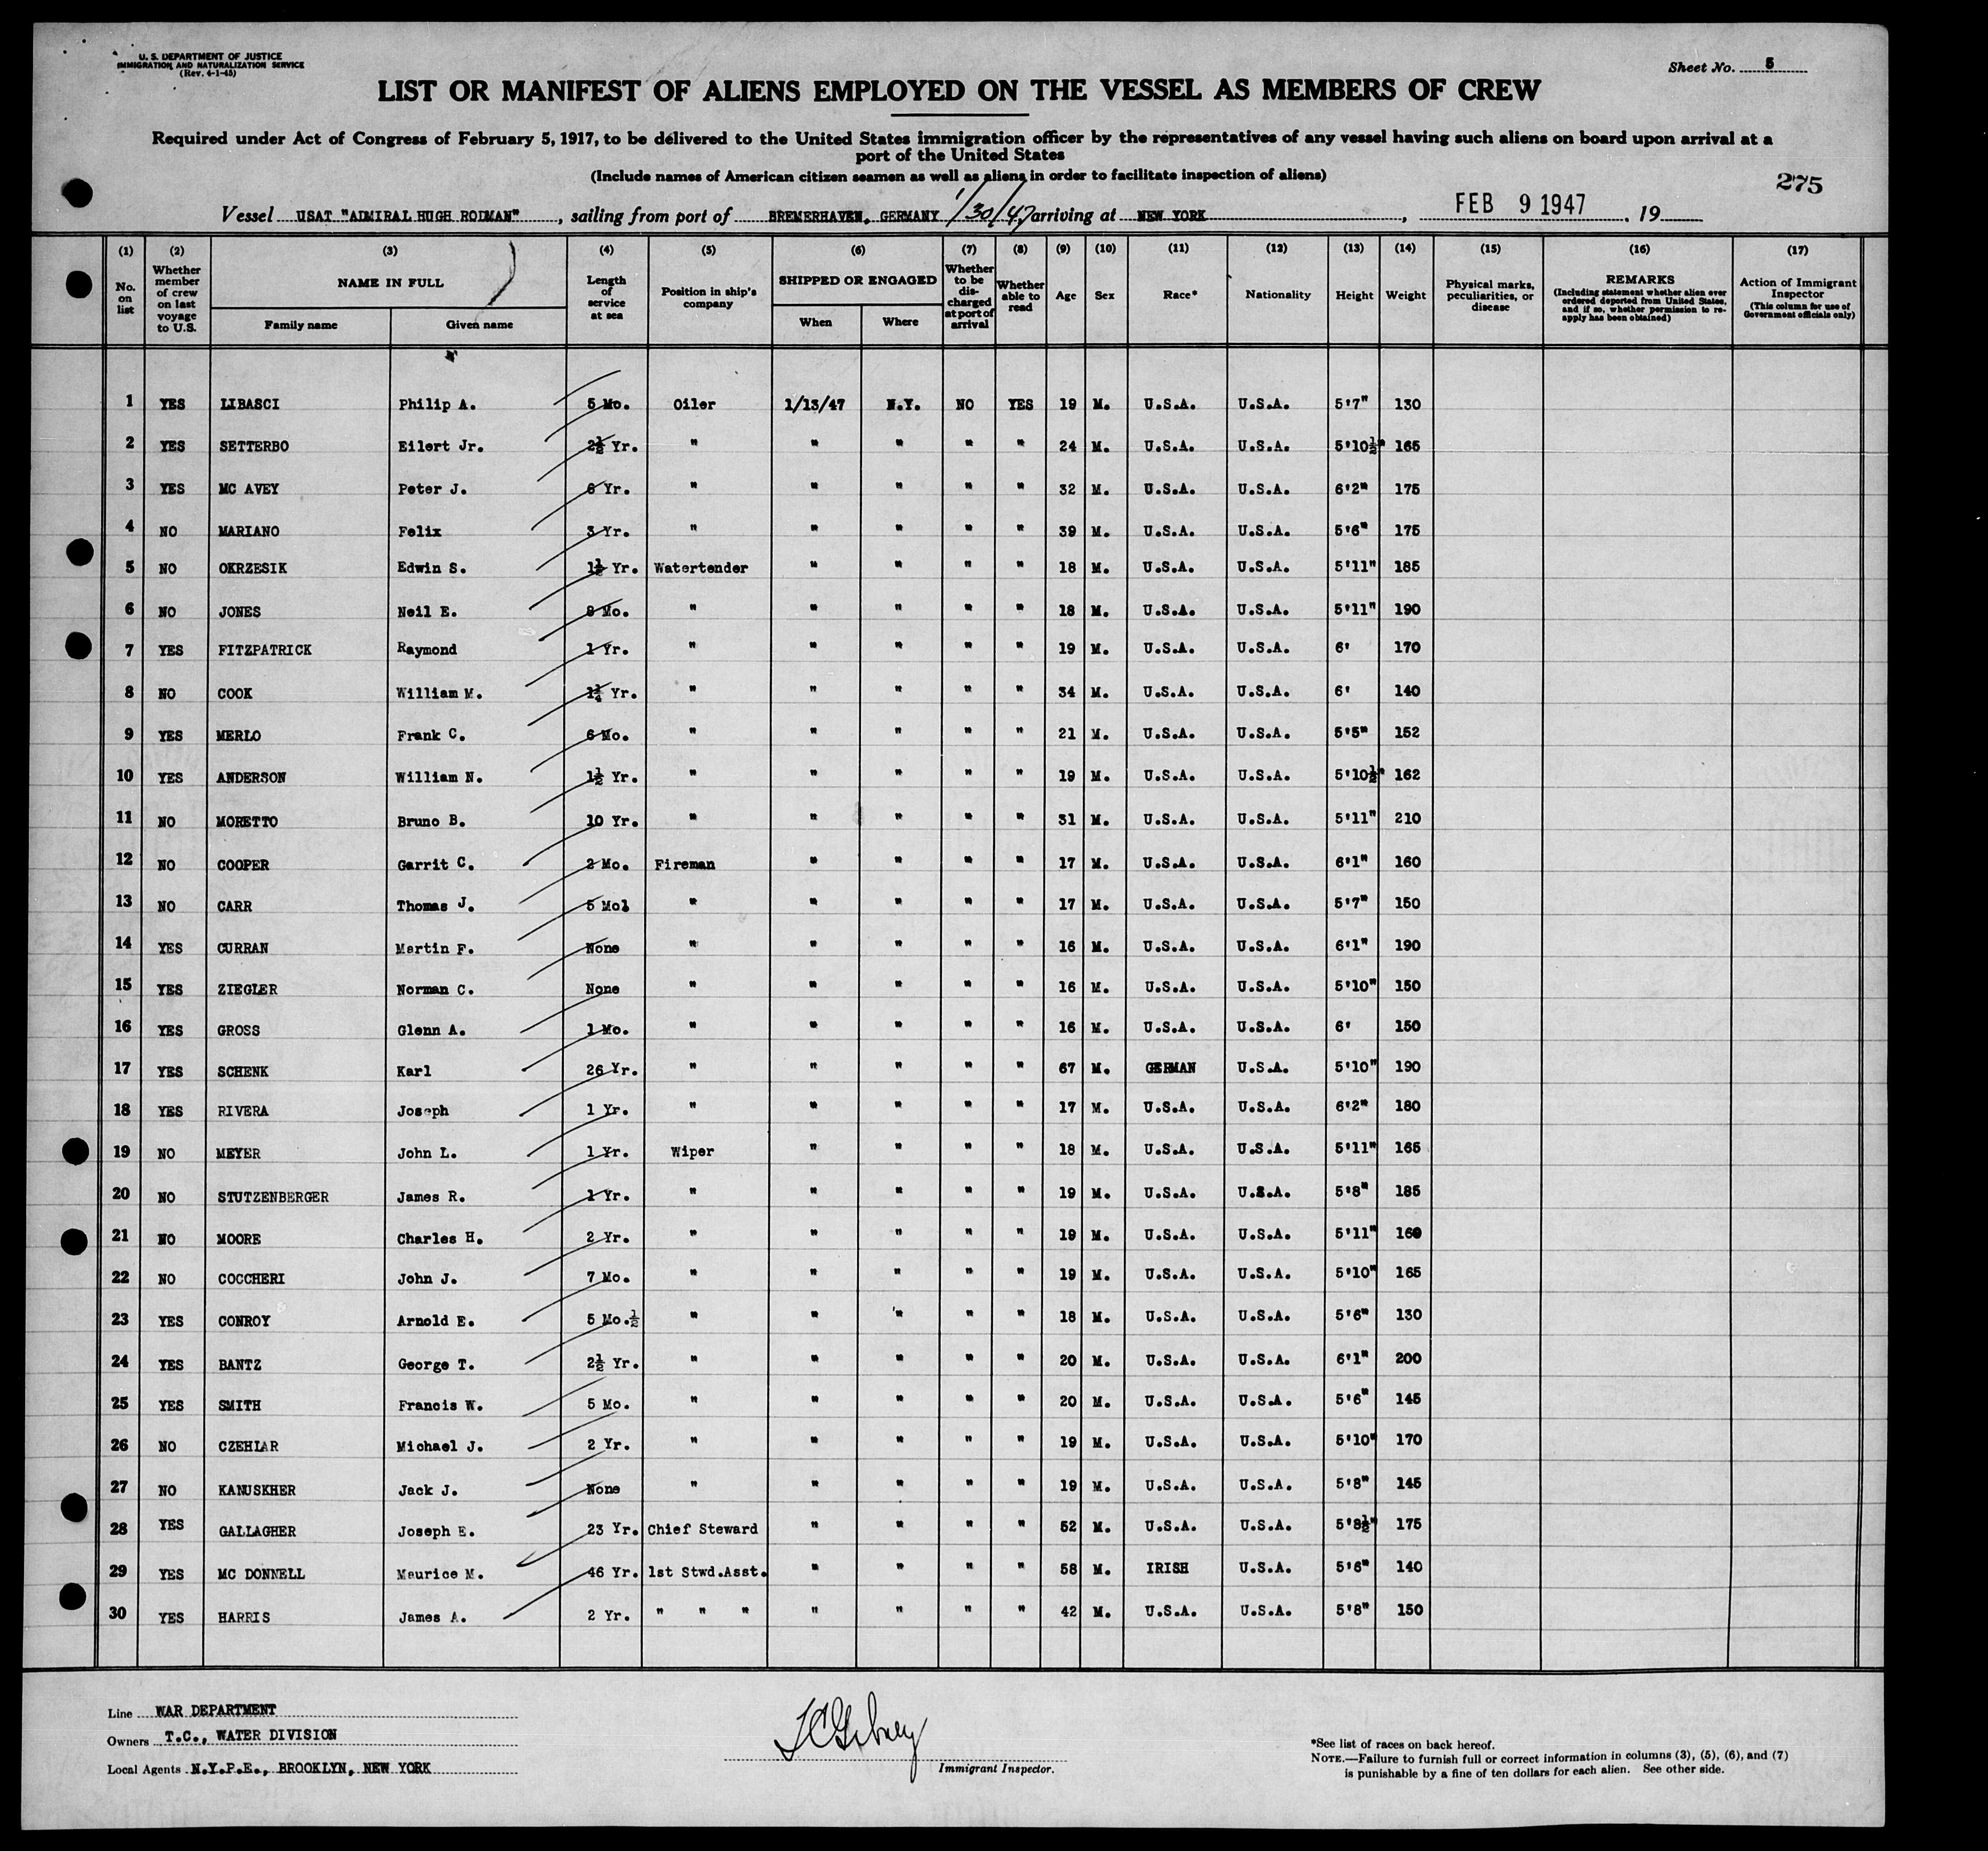 U. S. DEPARTMENT OF JUSTICE
IMMIGRATION AND NATURALIZATION SERVICE
(Rev. 4-1-45)
Sheet No. 5
LIST OR MANIFEST OF ALIENS EMPLOYED ON THE VESSEL AS MEMBERS OF CREW
Required under Act of Congress of February 5, 1917, to be delivered to the United States immigration officer by the representatives of any vessel having such aliens on board upon arrival at a
port of the United States
(Include names of American citizen seamen as well as aliens in order to facilitate inspection of aliens)
275
Vessel USAT "ADMIRAL HUGH RODMAN", sailing from port of BREMERHAVEN, GERMANY 1/30/47, arriving at NEW YORK, FEB 9 1947, 19
(1) No. on list (2) Whether member of crew on last voyage to U.S. (3) NAME IN FULL Family name Given name (4) Length of service at sea (5) Position in ship's company (6) SHIPPED OR ENGAGED When Where (7) Whether to be discharged at port of arrival (8) Whether able to read (9) Age (10) Sex (11) Race* (12) Nationality (13) Height (14) Weight (15) Physical marks, peculiarities, or disease (16) REMARKS (Including statement whether alien ever ordered deported from United States, and if so, whether permission to re-apply has been obtained) (17) Action of Immigrant Inspector (This column for use of Government officials only)
1 YES LIBASCI Philip A. 5 Mo. Oiler 1/13/47 N.Y. NO YES 19 M. U.S.A. U.S.A. 5'7" 130
2 YES SETTERBO Eilert Jr. 2½ Yr. " " " " " 24 M. U.S.A. U.S.A. 5'10½" 165
3 YES MC AVEY Peter J. 6 Yr. " " " " " 32 M. U.S.A. U.S.A. 6'2" 175
4 NO MARIANO Felix 3 Yr. " " " " " 39 M. U.S.A. U.S.A. 5'6" 175
5 NO OKRZESIK Edwin S. 1½ Yr. Watertender " " " " 18 M. U.S.A. U.S.A. 5'11" 185
6 NO JONES Neil E. 8 Mo. " " " " " 18 M. U.S.A. U.S.A. 5'11" 190
7 YES FITZPATRICK Raymond 1 Yr. " " " " " 19 M. U.S.A. U.S.A. 6' 170
8 NO COOK William M. 1¼ Yr. " " " " " 34 M. U.S.A. U.S.A. 6' 140
9 YES MERLO Frank C. 6 Mo. " " " " " 21 M. U.S.A. U.S.A. 5'5" 152
10 YES ANDERSON William N. 1½ Yr. " " " " " 19 M. U.S.A. U.S.A. 5'10½" 162
11 NO MORETTO Bruno B. 10 Yr. " " " " " 31 M. U.S.A. U.S.A. 5'11" 210
12 NO COOPER Garrit C. 2 Mo. Fireman " " " " 17 M. U.S.A. U.S.A. 6'1" 160
13 NO CARR Thomas J. 5 Mol " " " " " 17 M. U.S.A. U.S.A. 5'7" 150
14 YES CURRAN Martin F. None " " " " " 16 M. U.S.A. U.S.A. 6'1" 190
15 YES ZIEGLER Norman C. None " " " " " 16 M. U.S.A. U.S.A. 5'10" 150
16 YES GROSS Glenn A. 1 Mo. " " " " " 16 M. U.S.A. U.S.A. 6' 150
17 YES SCHENK Karl 26 Yr. " " " " " 67 M. GERMAN U.S.A. 5'10" 190
18 YES RIVERA Joseph 1 Yr. " " " " " 17 M. U.S.A. U.S.A. 6'2" 180
19 NO MEYER John L. 1 Yr. Wiper " " " " 18 M. U.S.A. U.S.A. 5'11" 165
20 NO STUTZENBERGER James R. 1 Yr. " " " " " 19 M. U.S.A. U.S.A. 5'8" 185
21 NO MOORE Charles H. 2 Yr. " " " " " 19 M. U.S.A. U.S.A. 5'11" 160
22 NO COCCHERI John J. 7 Mo. " " " " " 19 M. U.S.A. U.S.A. 5'10" 165
23 YES CONROY Arnold E. 5 Mo.½ " " " " " 18 M. U.S.A. U.S.A. 5'6" 130
24 YES BANTZ George T. 2½ Yr. " " " " " 20 M. U.S.A. U.S.A. 6'1" 200
25 YES SMITH Francis W. 5 Mo. " " " " " 20 M. U.S.A. U.S.A. 5'6" 145
26 NO CZEHLAR Michael J. 2 Yr. " " " " " 19 M. U.S.A. U.S.A. 5'10" 170
27 NO KANUSKHER Jack J. None " " " " " 19 M. U.S.A. U.S.A. 5'8" 145
28 YES GALLAGHER Joseph E. 23 Yr. Chief Steward " " " " 52 M. U.S.A. U.S.A. 5'8½" 175
29 YES MC DONNELL Maurice M. 46 Yr. 1st Stwd.Asst. " " " " 58 M. IRISH U.S.A. 5'6" 140
30 YES HARRIS James A. 2 Yr. " " " " " " " 42 M. U.S.A. U.S.A. 5'8" 150
Line WAR DEPARTMENT
Owners T.C., WATER DIVISION
Local Agents N.Y.P.E., BROOKLYN, NEW YORK
Immigrant Inspector.
*See list of races on back hereof.
NOTE.—Failure to furnish full or correct information in columns (3), (5), (6), and (7)
is punishable by a fine of ten dollars for each alien. See other side.